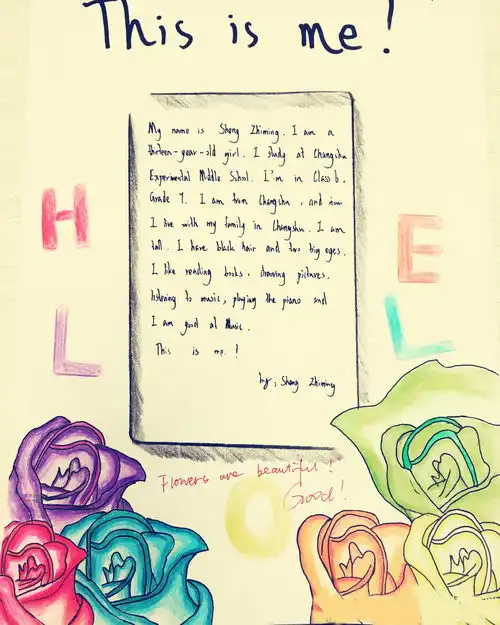 This is me!
H
E
L
L
O
My name is Sheng Zhiming. I am a
thirteen-year-old girl. I study at Changsha
Experimental Middle School. I'm in Class 6,
Grade 7. I am from Changsha, and now
I live with my family in Changsha. I am
tall. I have black hair and two big eyes.
I like reading books, drawing pictures,
listening to music, playing the piano and
I am good at Music.
This is me!
by: Sheng Zhiming
Flowers are beautiful!
Good!